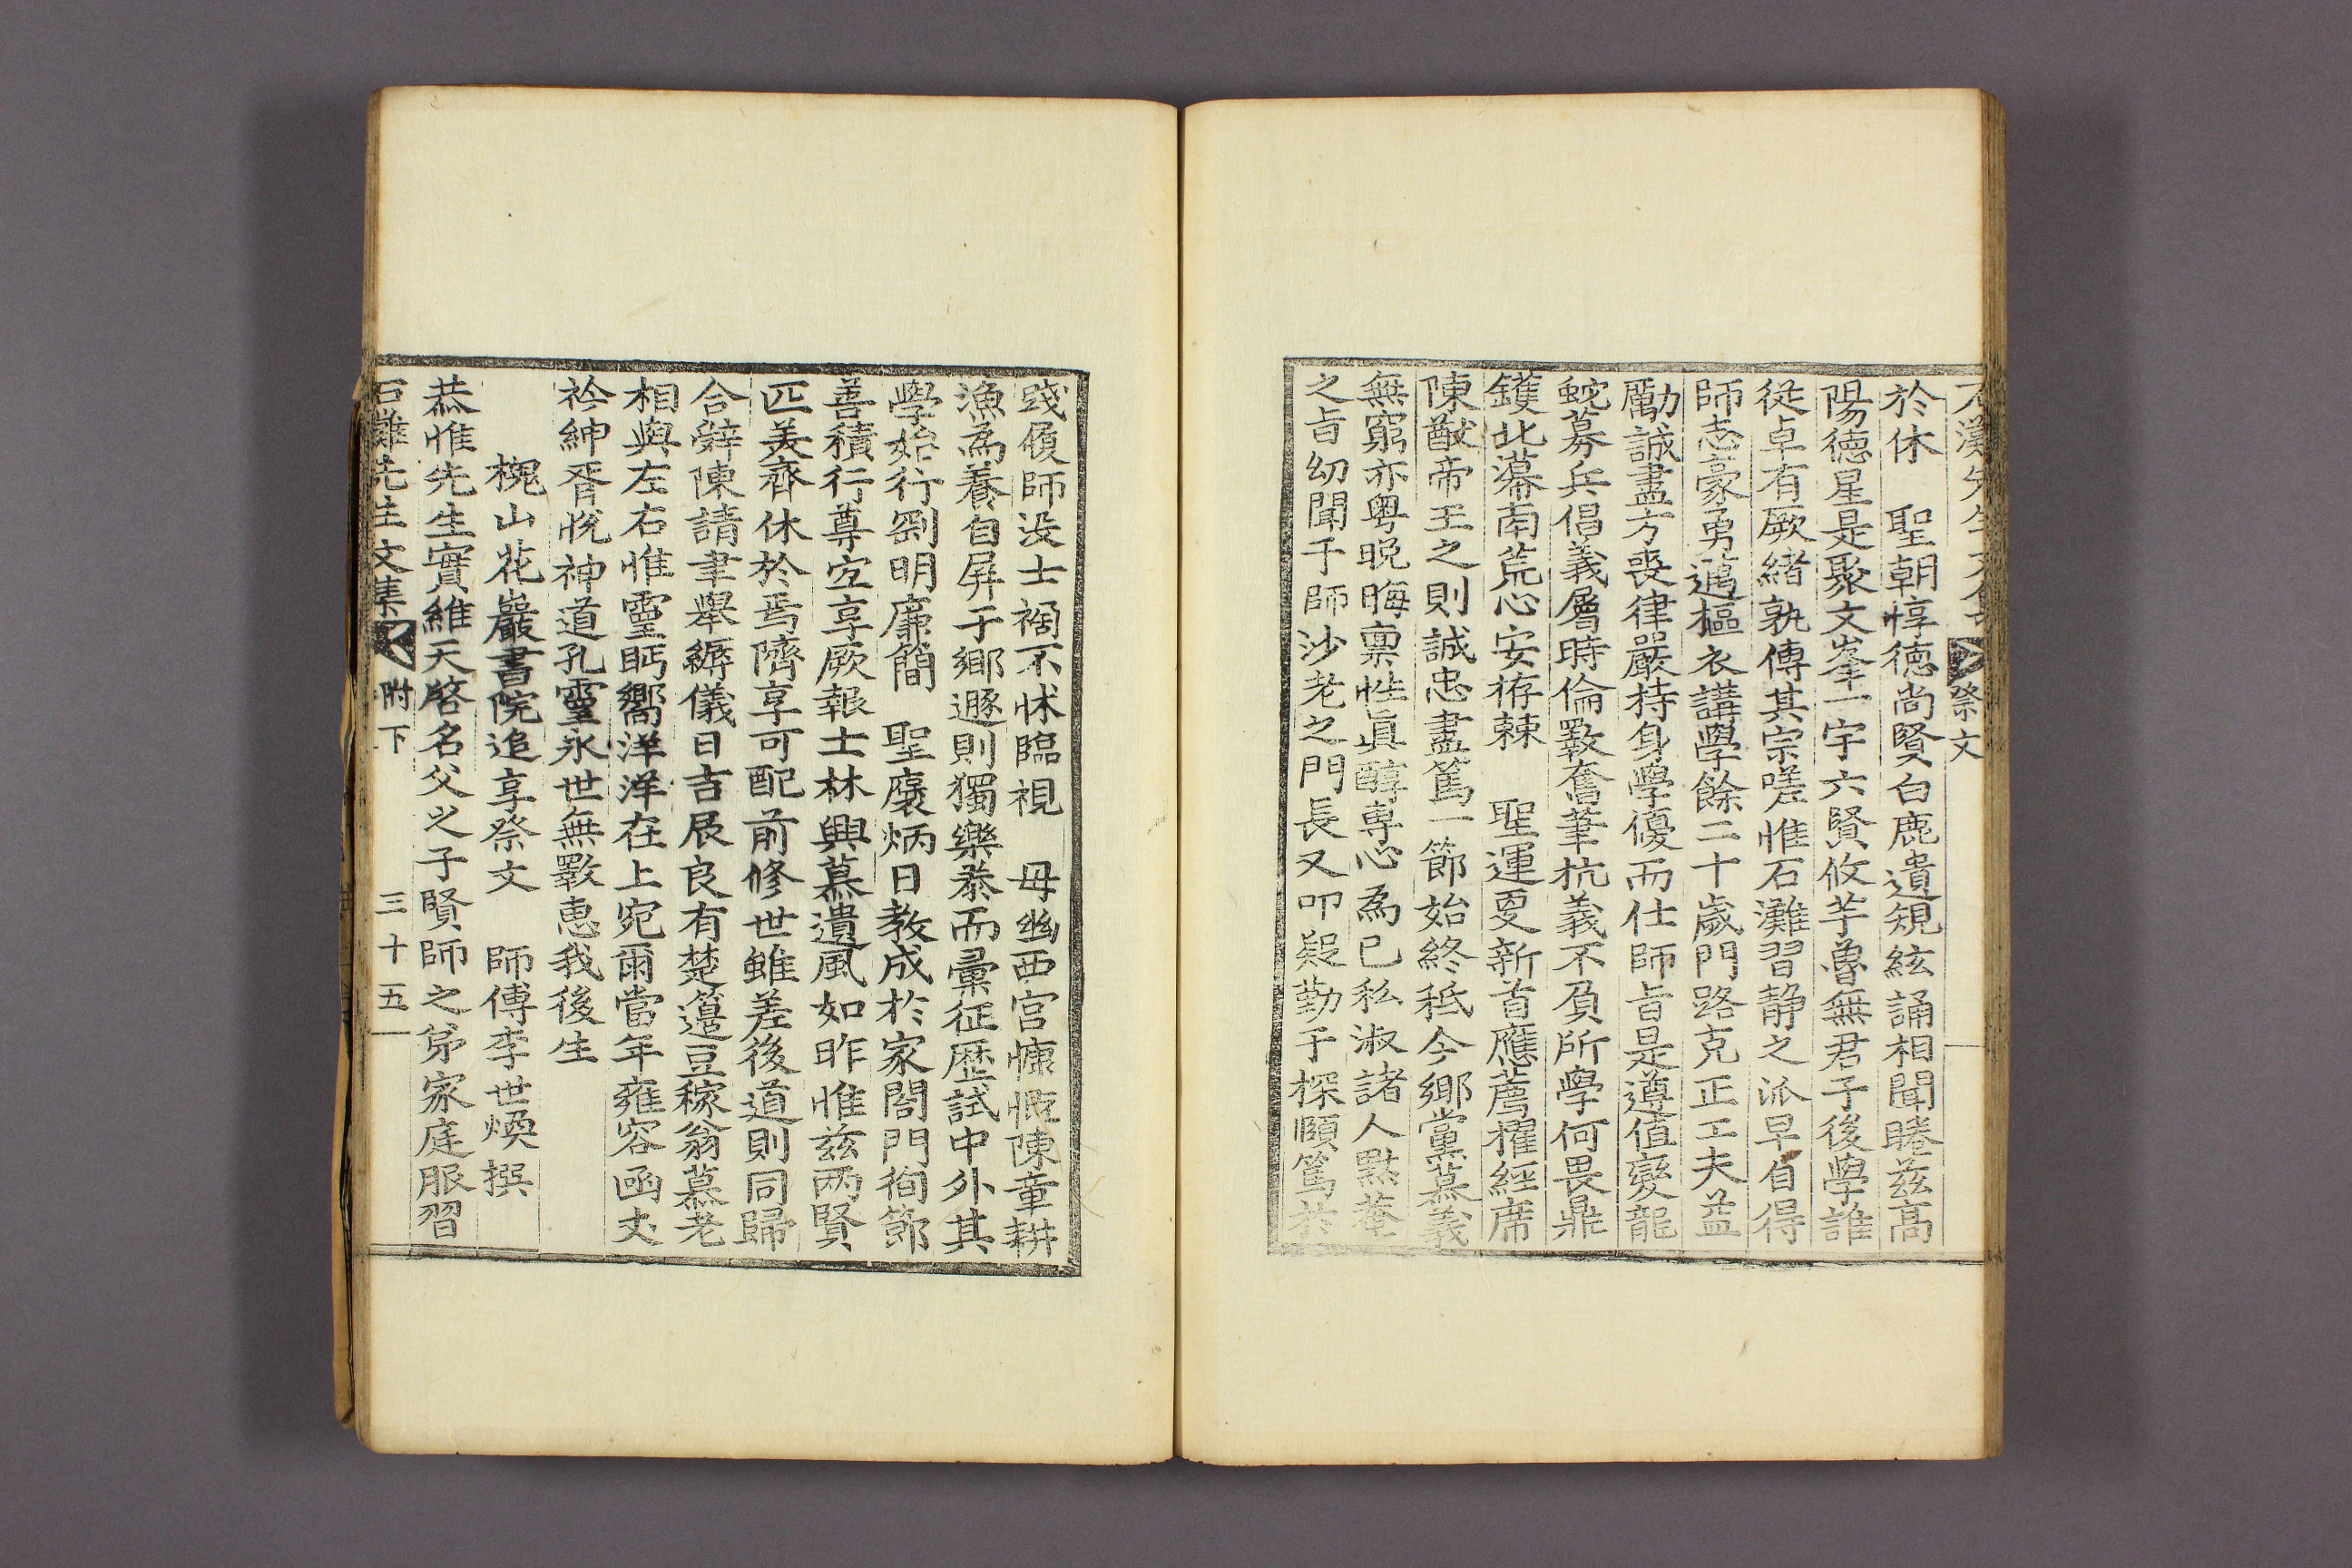 石灘先生文集 祭文
於休 聖朝惇德尚賢白鹿遺規絃誦相聞睠玆高
陽德星是聚文峯一宇六賢攸芋魯無君子後學誰
從卓有厥緖孰傳其宗嗟惟石灘習靜之派早自得
師志豪勇邁樞衣講學餘二十歲門路克正工夫益
勵誠盡方喪律嚴持身學優而仕師旨是遵値變龍
蛇募兵倡義層時倫斁奮筆抗義不負所學何畏鼎
鑊北藩南荒心安栫棘 聖運叓新首應薦擢經席
陳猷帝王之則誠忠盡篤一節始終秪今鄉黨慕義
無窮亦粤晩晦稟性眞醇專心爲己私淑諸人默菴
之旨幼聞于師沙老之門長又叩疑勤于探賾篤於
踐履師沒士禍不怵臨視 毋幽西宮慷慨陳章耕
漁爲養自屛于鄉遯則獨樂泰而彙征歷試中外其
學始行劉明廉簡 聖褒炳日敎成於家閤門徇節
善積行尊宜享厥報士林興慕遺風如昨惟玆兩賢
匹美齊休於焉隮享可配前修世雖差後道則同歸
合辭陳請聿擧縟儀日吉辰良有楚籩豆稼翁慕老
相與左右惟靈眄嚮洋洋在上宛爾當年雍容函丈
衿紳胥悅神道孔靈永世無斁惠我後生
槐山花巖書院追享祭文 師傅李世煥撰
恭惟先生實維天啓名父之子賢師之弟家庭服習
石灘先生文集 附下 三十五